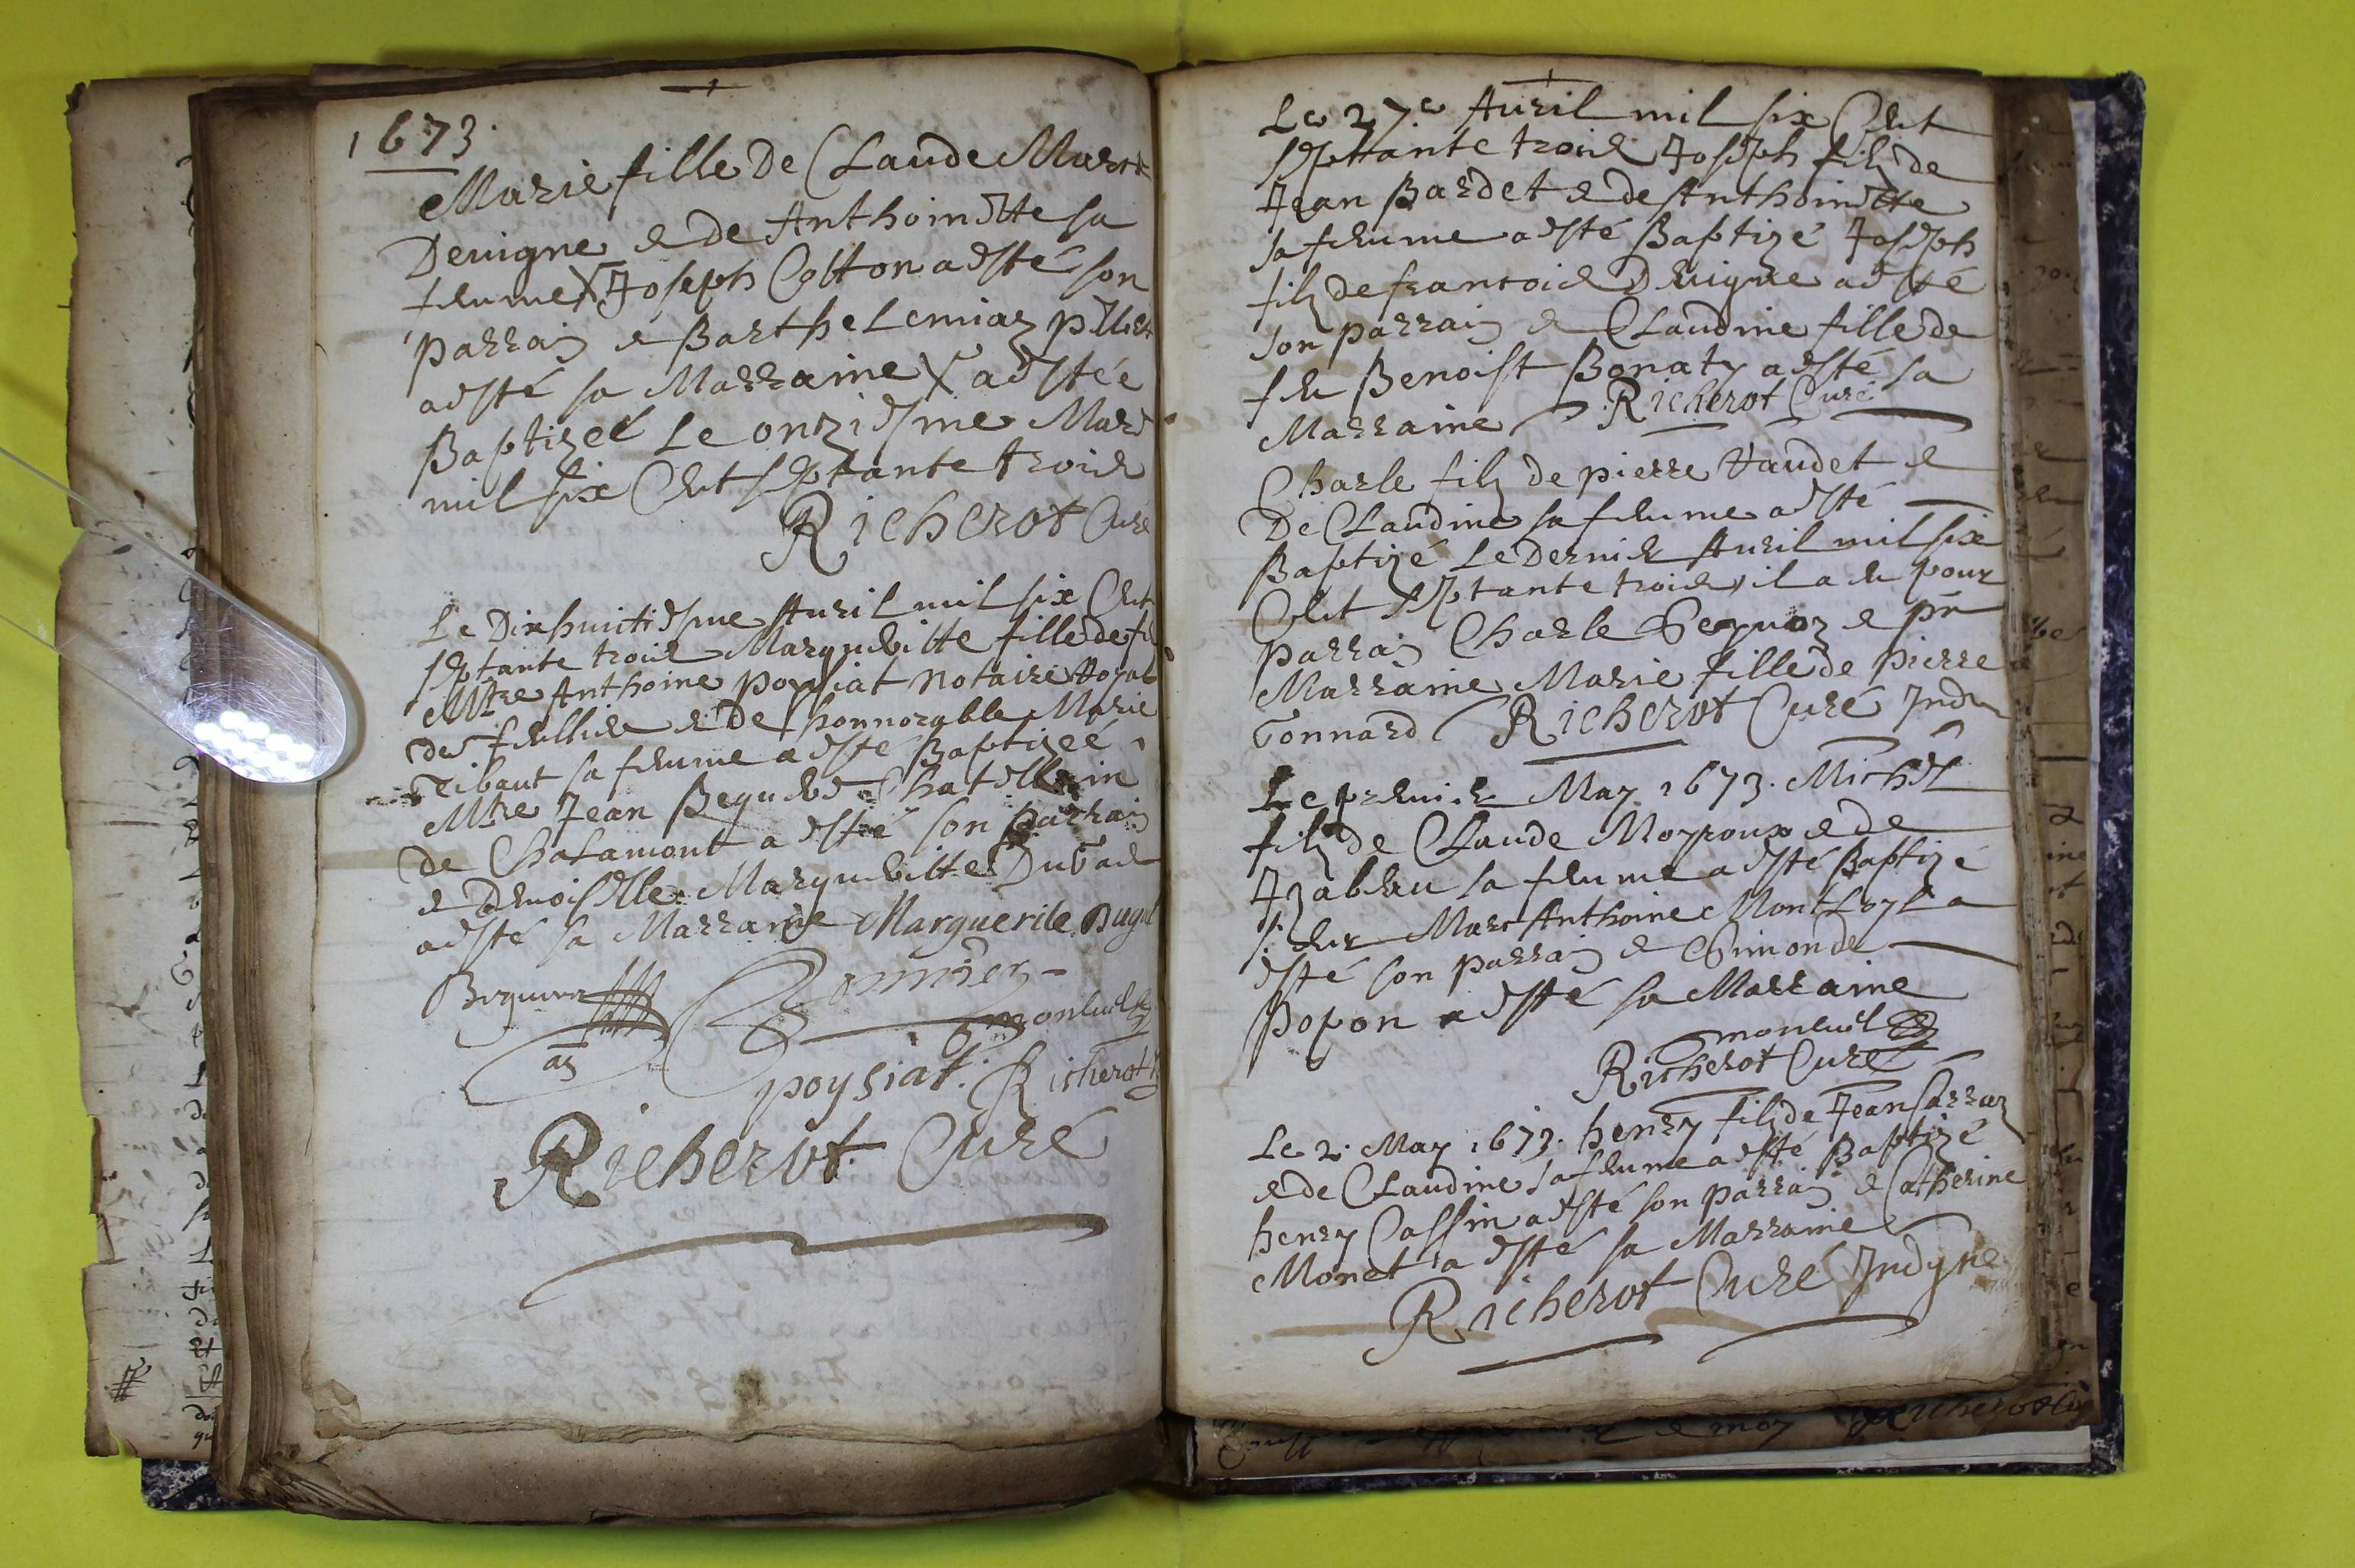 1673.
Marie fille De Claude
Devigne & de Anthoinette sa
femme Joseph Cotton a esté son
parrain & Barthelemiaz
a esté sa Marraine a estée
Baptizeé Le onziesme Mars
mil six Cent septante trois
Richerot Curé
Le Dixhuictiesme Auril mil six Cent
septante trois Marguerite fille de
Mtre Anthoine poysiat Notaire Royal
de & De honnorable Marie
Tibaut sa femme a esté Baptizeé
Mtre Jean Chatellain
de Chalamont a esté son parrain
& Demoiselle Marguerite
a esté sa Marraine Marguerite
poysiat. Richerot
Richerot Curé
Le 27e Auril mil six Cent
septtante trois Joseph filz de
Jean Bardet & de Anthoinette
sa femme a esté Baptizé Joseph
filz de francois Devigne a esté
son parrain & Claudine fille de
feu Benoist Bonaty a esté sa
Marraine Richerot Curé
Charle filz de pierre Vaudet &
De Claudine sa femme a esté
Baptizé Le Dernier Auril mil six
Cent septante trois, il a eu pour
parrain Charle & pr
Marraine Marie fille de pierre
Gonnard Richerot Curé Ind
Le premier May 1673. Michel
filz de Claude Moyroux & de
Izabeau sa femme a esté Baptizé
sieur Marc Anthoine Montloyl a
esté son parrain & Esimonde
Popon a esté sa Marraine
Richerot Curé
Le 2. May 1673. henry filz de Jean Sarraz
& de Claudine sa femme a esté Baptizé
henry Cassin a esté son parrain & Catherine
Monet a esté sa Marraine
Richerot Curé Indyne